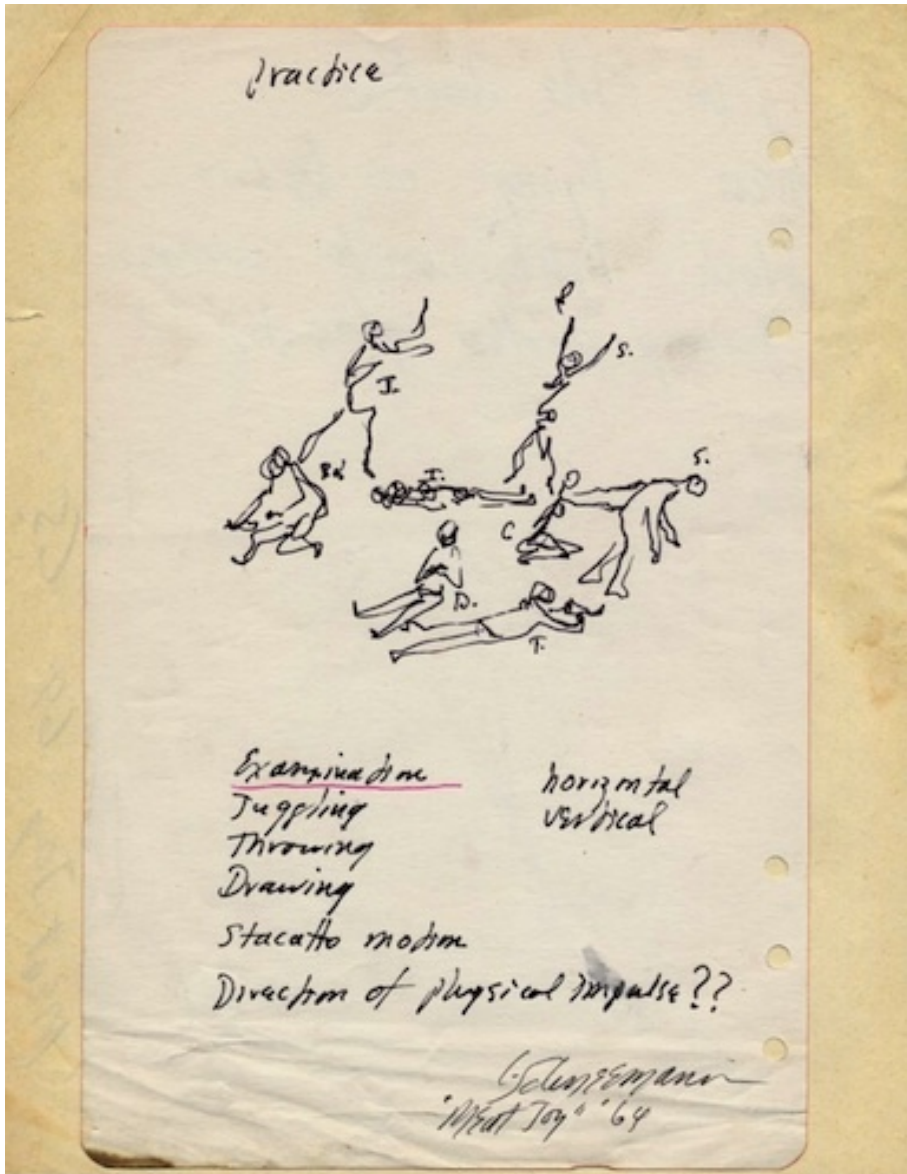 Practice
R
S.
J.
S.
I.
C
D.
T.
Examination
Juggling
Throwing
Drawing
Stacatto motion
Direction of physical impulse??
horizontal
vertical
C. Schneemann
"Meat Joy" '64